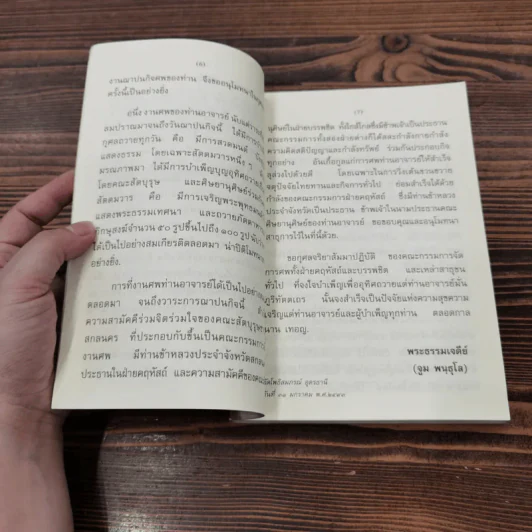 (6)
งานฌาปนกิจศพของท่าน จึงขออนุโมทนา
ครั้งนี้เป็นอย่างยิ่ง
อนึ่ง งานศพของท่านอาจารย์ นับแต่
ลมปราณมาจนถึงวันฌาปนกิจนี้ ได้มีการ
กุศลถวายทุกวัน คือ มีการสวดมนต์
แสดงธรรม โดยเฉพาะสัตตมวารหนึ่ง ๆ
มรณภาพมา ได้มีการบำเพ็ญบุญอุทิศถวาย
โดยคณะสัตบุรุษ และศิษยานุศิษย์ร่วมกัน
สัตตมวาร คือ มีการเจริญพระพุทธมนต์
แสดงพระธรรมเทศนา และถวายภัตตาหาร
ภิกษุสงฆ์จำนวน ๕๐ รูปขึ้นไปถึง ๑๐๐ รูป
ได้เป็นไปอย่างสมเกียรติตลอดมา น่าปีติโมทนา
อย่างยิ่ง
การที่งานศพท่านอาจารย์ได้เป็นไปอย่าง
ตลอดมา จนถึงวาระการฌาปนกิจนี้
ความสามัคคีร่วมจิตร่วมใจของคณะสัตบุรุษ
สกลนคร ที่ประกอบกับขึ้นเป็นคณะกรรมการ
งานศพ มีท่านข้าหลวงประจำจังหวัดสกลนคร
ประธานในฝ่ายคฤหัสถ์ และความสามัคคีของคณะ
(7)
นุศิษย์ในฝ่ายบรรพชิต ทั้งใกล้ไกลซึ่งมีข้าพเจ้าเป็นประธาน
คณะกรรมการทั้งสองฝ่ายต่างก็ได้สละกำลังกายกำลัง
ความคิดสติปัญญาและกำลังทรัพย์ ร่วมกันประกอบกิจ
ทุกอย่าง อันเกื้อกูลแก่การศพท่านอาจารย์ให้สำเร็จ
ลุล่วงไปด้วยดี โดยเฉพาะในการวิ่งเต้นขวนขวาย
จตุปัจจัยไทยทานและกิจการทั่วไป ย่อมสำเร็จได้ด้วย
กำลังของคณะกรรมการฝ่ายคฤหัสถ์ ซึ่งมีท่านข้าหลวง
ประจำจังหวัดเป็นประธาน ข้าพเจ้าในนามประธานคณะ
ศิษยานุศิษย์ของท่านอาจารย์ ขอขอบคุณและอนุโมทนา
สาธุการไว้ในที่นี้ด้วย.
ขอกุศลจริยาสัมมาปฏิบัติ ของคณะกรรมการจัด
การศพทั้งฝ่ายคฤหัสถ์และบรรพชิต และเหล่าสาธุชน
ทั่วไป ที่จงใจบำเพ็ญเพื่ออุทิศถวายแต่ท่านอาจารย์มั่น
ภูริทัตตเถร นั้นจงสำเร็จเป็นปัจจัยแห่งความสุขความ
เจริญแด่ท่านอาจารย์และผู้บำเพ็ญทุกท่าน ตลอดกาล
นาน เทอญ.
พระธรรมเจดีย์
(จูม พนฺธุโล)
วัดโพธิสมภรณ์ อุดรธานี
วันที่ ๓๑ มกราคม พ.ศ.๒๔๙๓